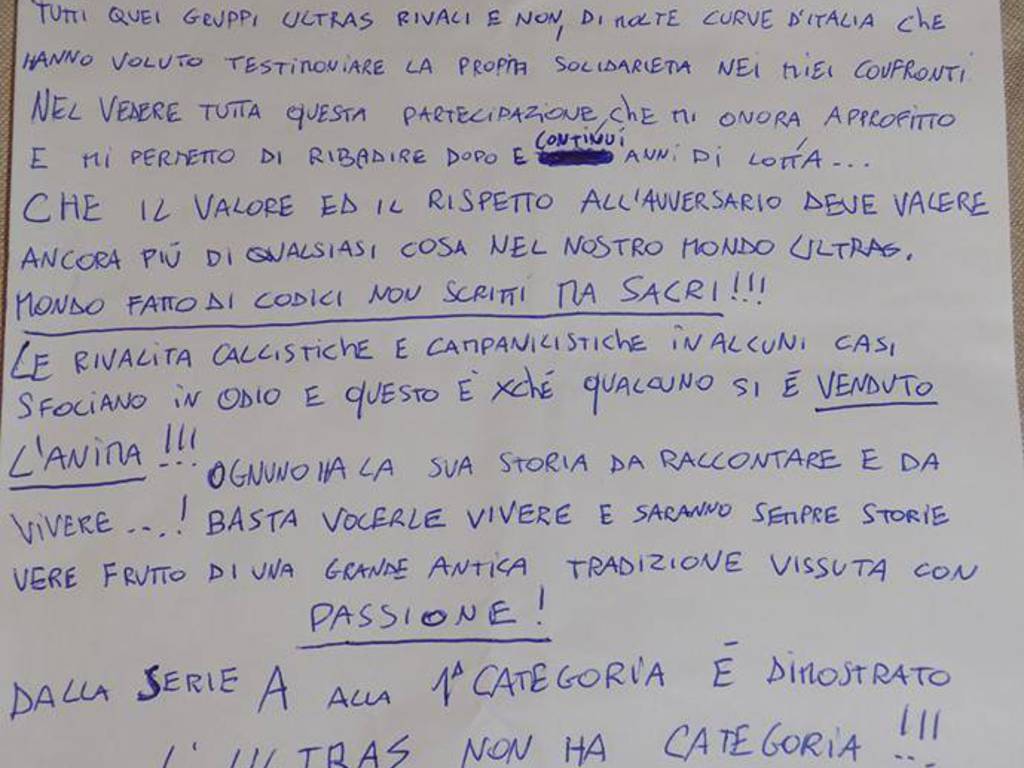 TUTTI QUEI GRUPPI ULTRAS RIVALI E NON, DI MOLTE CURVE D'ITALIA CHE
HANNO VOLUTO TESTIMONIARE LA PROPRIA SOLIDARIETA NEI MIEI CONFRONTI
NEL VEDERE TUTTA QUESTA PARTECIPAZIONE, CHE MI ONORA APPROFITTO
E MI PERMETTO DI RIBADIRE DOPO E CONTINUI ANNI DI LOTTA...
CHE IL VALORE ED IL RISPETTO ALL'AVVERSARIO DEVE VALERE
ANCORA PIÚ DI QUALSIASI COSA NEL NOSTRO MONDO ULTRAS.
MONDO FATTO DI CODICI NON SCRITTI MA SACRI!!!
LE RIVALITA CALCISTICHE E CAMPANILISTICHE IN ALCUNI CASI
SFOCIANO IN ODIO E QUESTO E' XCHÉ QUALCUNO SI É VENDUTO
L'ANIMA!!! OGNUNO HA LA SUA STORIA DA RACCONTARE E DA
VIVERE...! BASTA VOLERLE VIVERE E SARANNO SEMPRE STORIE
VERE FRUTTO DI UNA GRANDE ANTICA TRADIZIONE VISSUTA CON
PASSIONE!
DALLA SERIE A ALLA 1ª CATEGORIA É DIMOSTRATO
L'ULTRAS NON HA CATEGORIA!!!